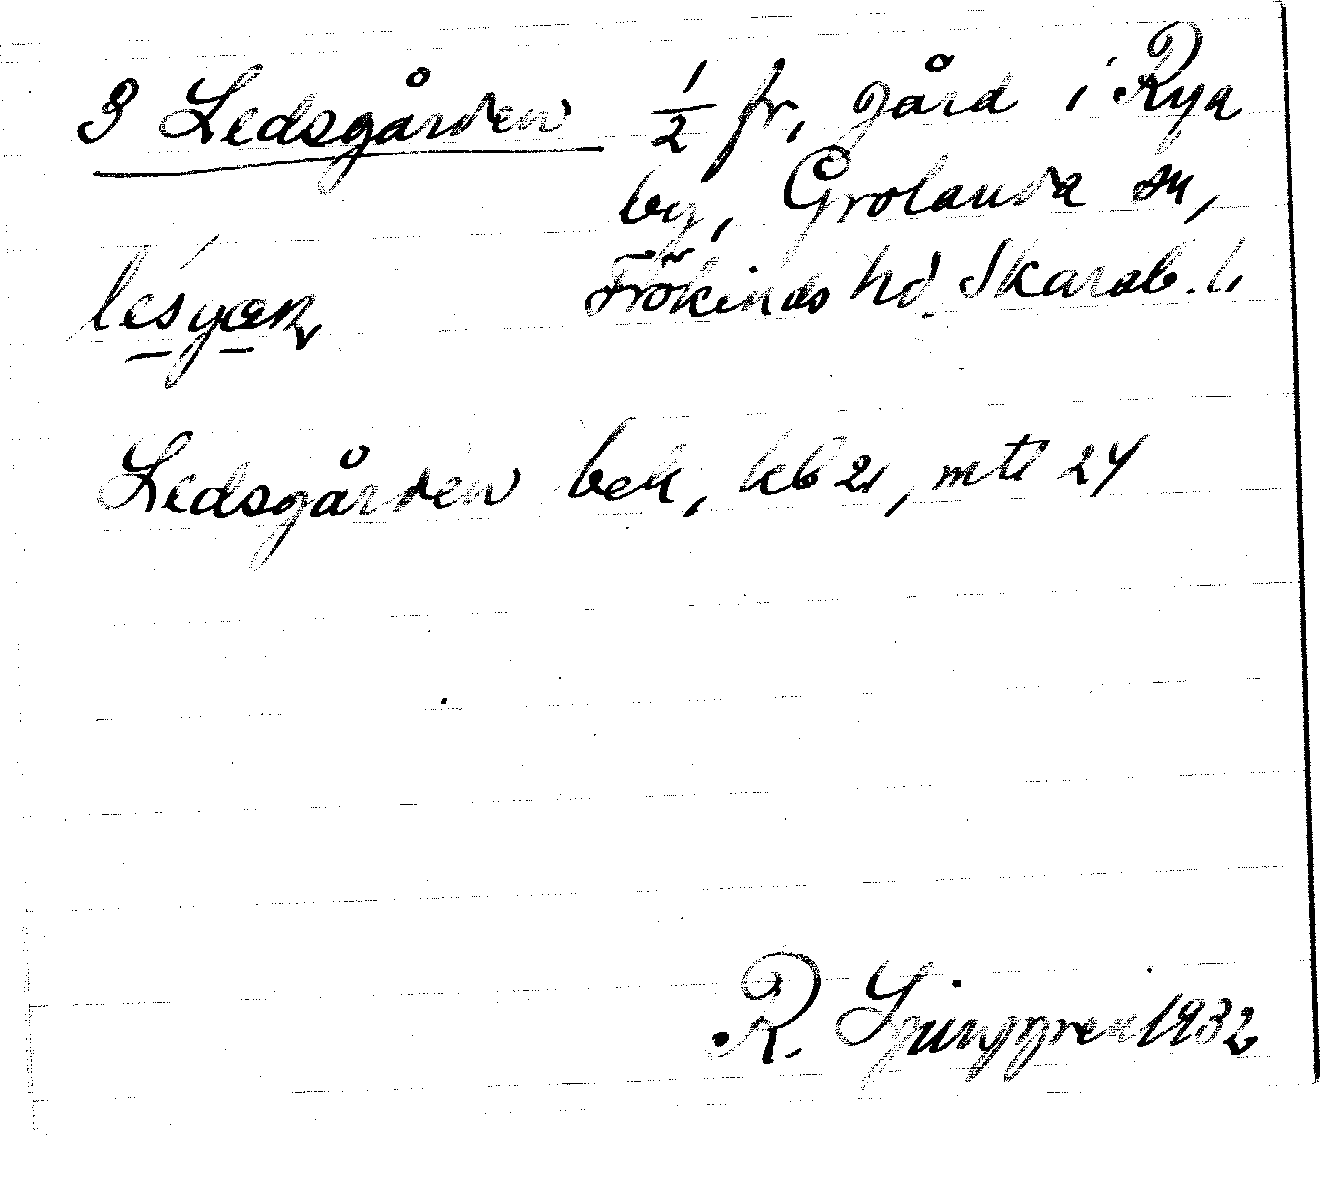 3 Ledsgården 1/2 fr, gård i Rya
by, Grolanda sn,
Frökinds hd Skarab. l.
lésgæɳ
Ledsgården bek, kb 21, mtl 24
R. Ljunggren 1932